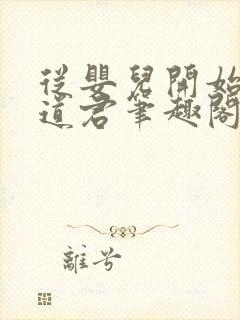 從嬰兒開始
道君筆趣閣
離兮